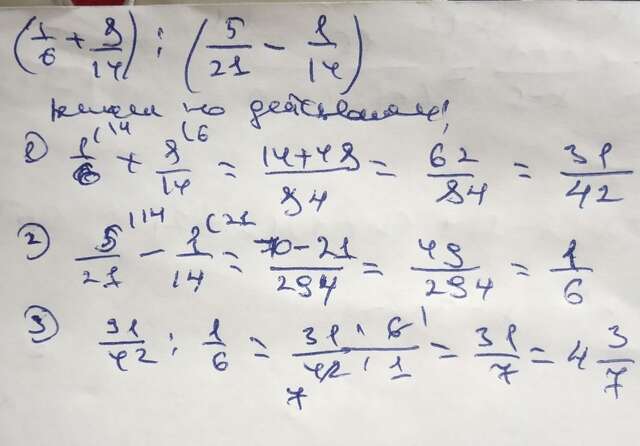 (1/6 + 8/14) : (5/21 - 1/14)
решаем по действиям!
1) 1/6 (14 + 8/14 (6 = 14+48/84 = 62/84 = 31/42
2) 5/21 (14 - 1/14 (21 = 70-21/294 = 49/294 = 1/6
3) 31/42 : 1/6 = 31 · 6 1/42 7 · 1 = 31/7 = 4 3/7